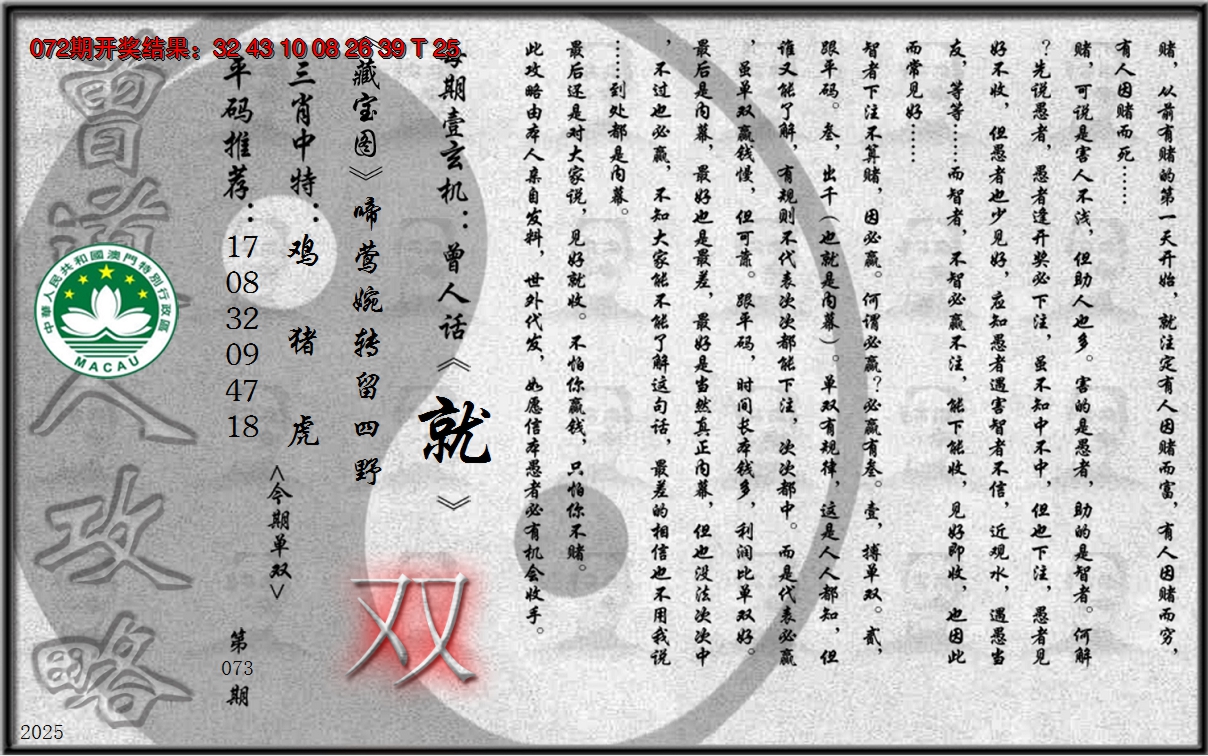 072期开奖结果：32 43 10 08 26 39 T 25
赌，从前有赌的第一天开始，就注定有人因赌而富，有人因赌而穷，
有人因赌而死……
赌，可说是害人不浅，但助人也多。害的是愚者，助的是智者。何解
？先说愚者，愚者逢开奖必下注，虽不知中不中，但也下注，愚者见
好不收，但愚者也少见好，应知愚者遇害智者不信，近观水，遇愚当
友，等等……而智者，不智必赢不注，能下能收，见好即收，也因此
而常见好……
智者下注不算赌，因必赢。何谓必赢？必赢有叁。壹，搏单双。贰，
跟平码。叁，出千（也就是内幕）。单双有规律，这是人人都知，但
谁又能了解，有规则不代表次次都能下注，次次都中。而是代表必赢
，虽单双赢钱慢，但可靠。跟平码，时间长本钱多，利润比单双好。
最后是内幕，最好也是最差，最好是当然真正内幕，但也没法次次中
，不过也必赢，不知大家能不能了解这句话，最差的相信也不用我说
……到处都是内幕。
最后还是对大家说，见好就收。不怕你赢钱，只怕你不赌。
此攻略由本人亲自发料，世外代发，如愿信本愚者必有机会收手。
每期壹玄机：曾人话《就》
《藏宝图》啼莺婉转留四野
双
三肖中特：鸡 猪 虎
<今期单双>
平码推荐：17 08 32 09 47 18
第073期
曾道人攻略
中華人民共和國澳門特別行政區
MACAU
2025